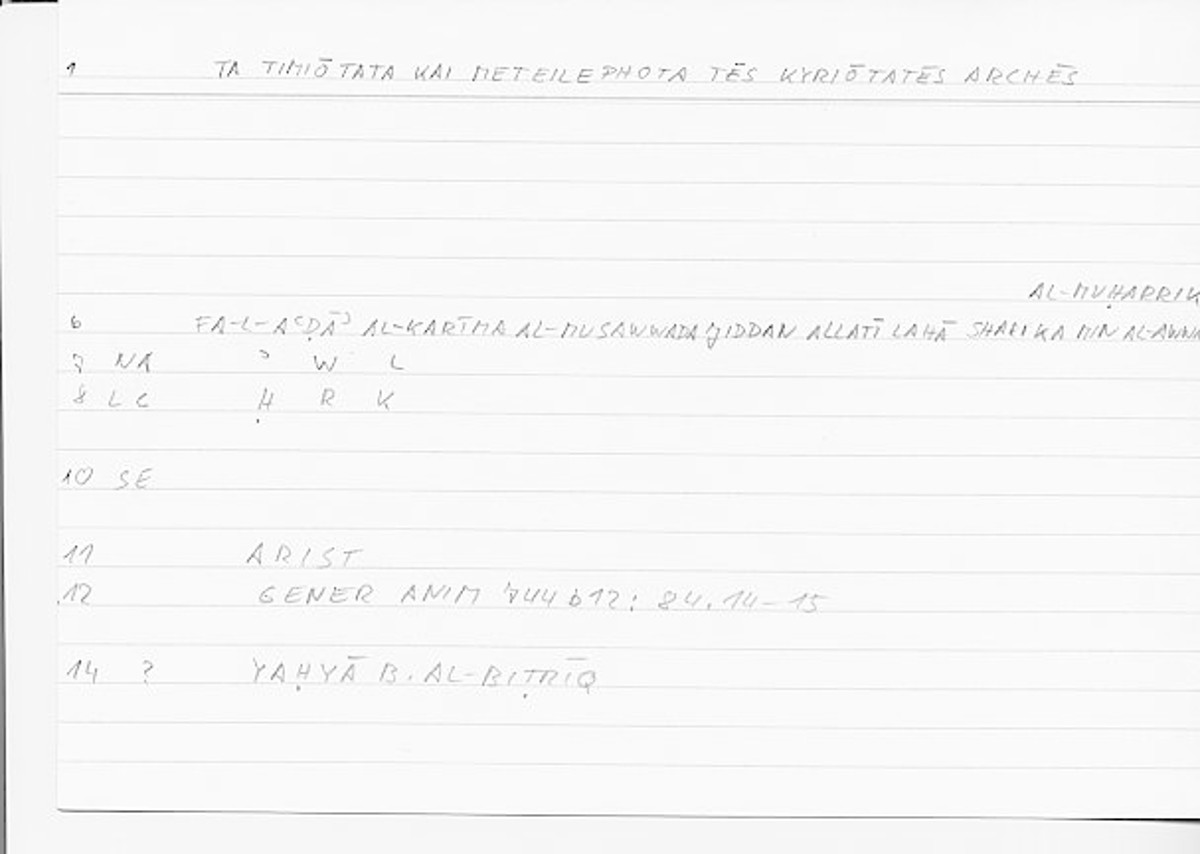 1 TA TIMIŌTATA KAI METEILEPHOTA TĒS KYRIŌTATĒS ARCHĒS
AL-MUḤARRIK
6 FA-L-AʿḌĀʾ AL-KARĪMA AL-MUSAWWADA JIDDAN ALLATĪ LAHĀ SHARIKA MIN AL-AWWA
7 NA ʾ W L
8 LC Ḥ R K
10 SE
11 ARIST
12 GENER ANIM 744b12: 84.14-15
14 ? YAḤYĀ B. AL-BIṬRĪQ